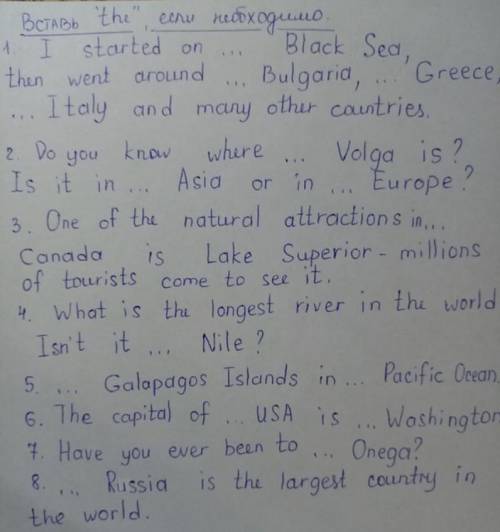 Вставь "the", если необходимо.
1. I started on ... Black Sea,
then went around ... Bulgaria, ... Greece,
... Italy and many other countries.
2. Do you know where ... Volga is?
Is it in ... Asia or in ... Europe?
3. One of the natural attractions in...
Canada is Lake Superior - millions
of tourists come to see it.
4. What is the longest river in the world
Isn't it ... Nile?
5. ... Galapagos Islands in ... Pacific Ocean.
6. The capital of ... USA is ... Washington
7. Have you ever been to ... Onega?
8. ... Russia is the largest country in
the world.